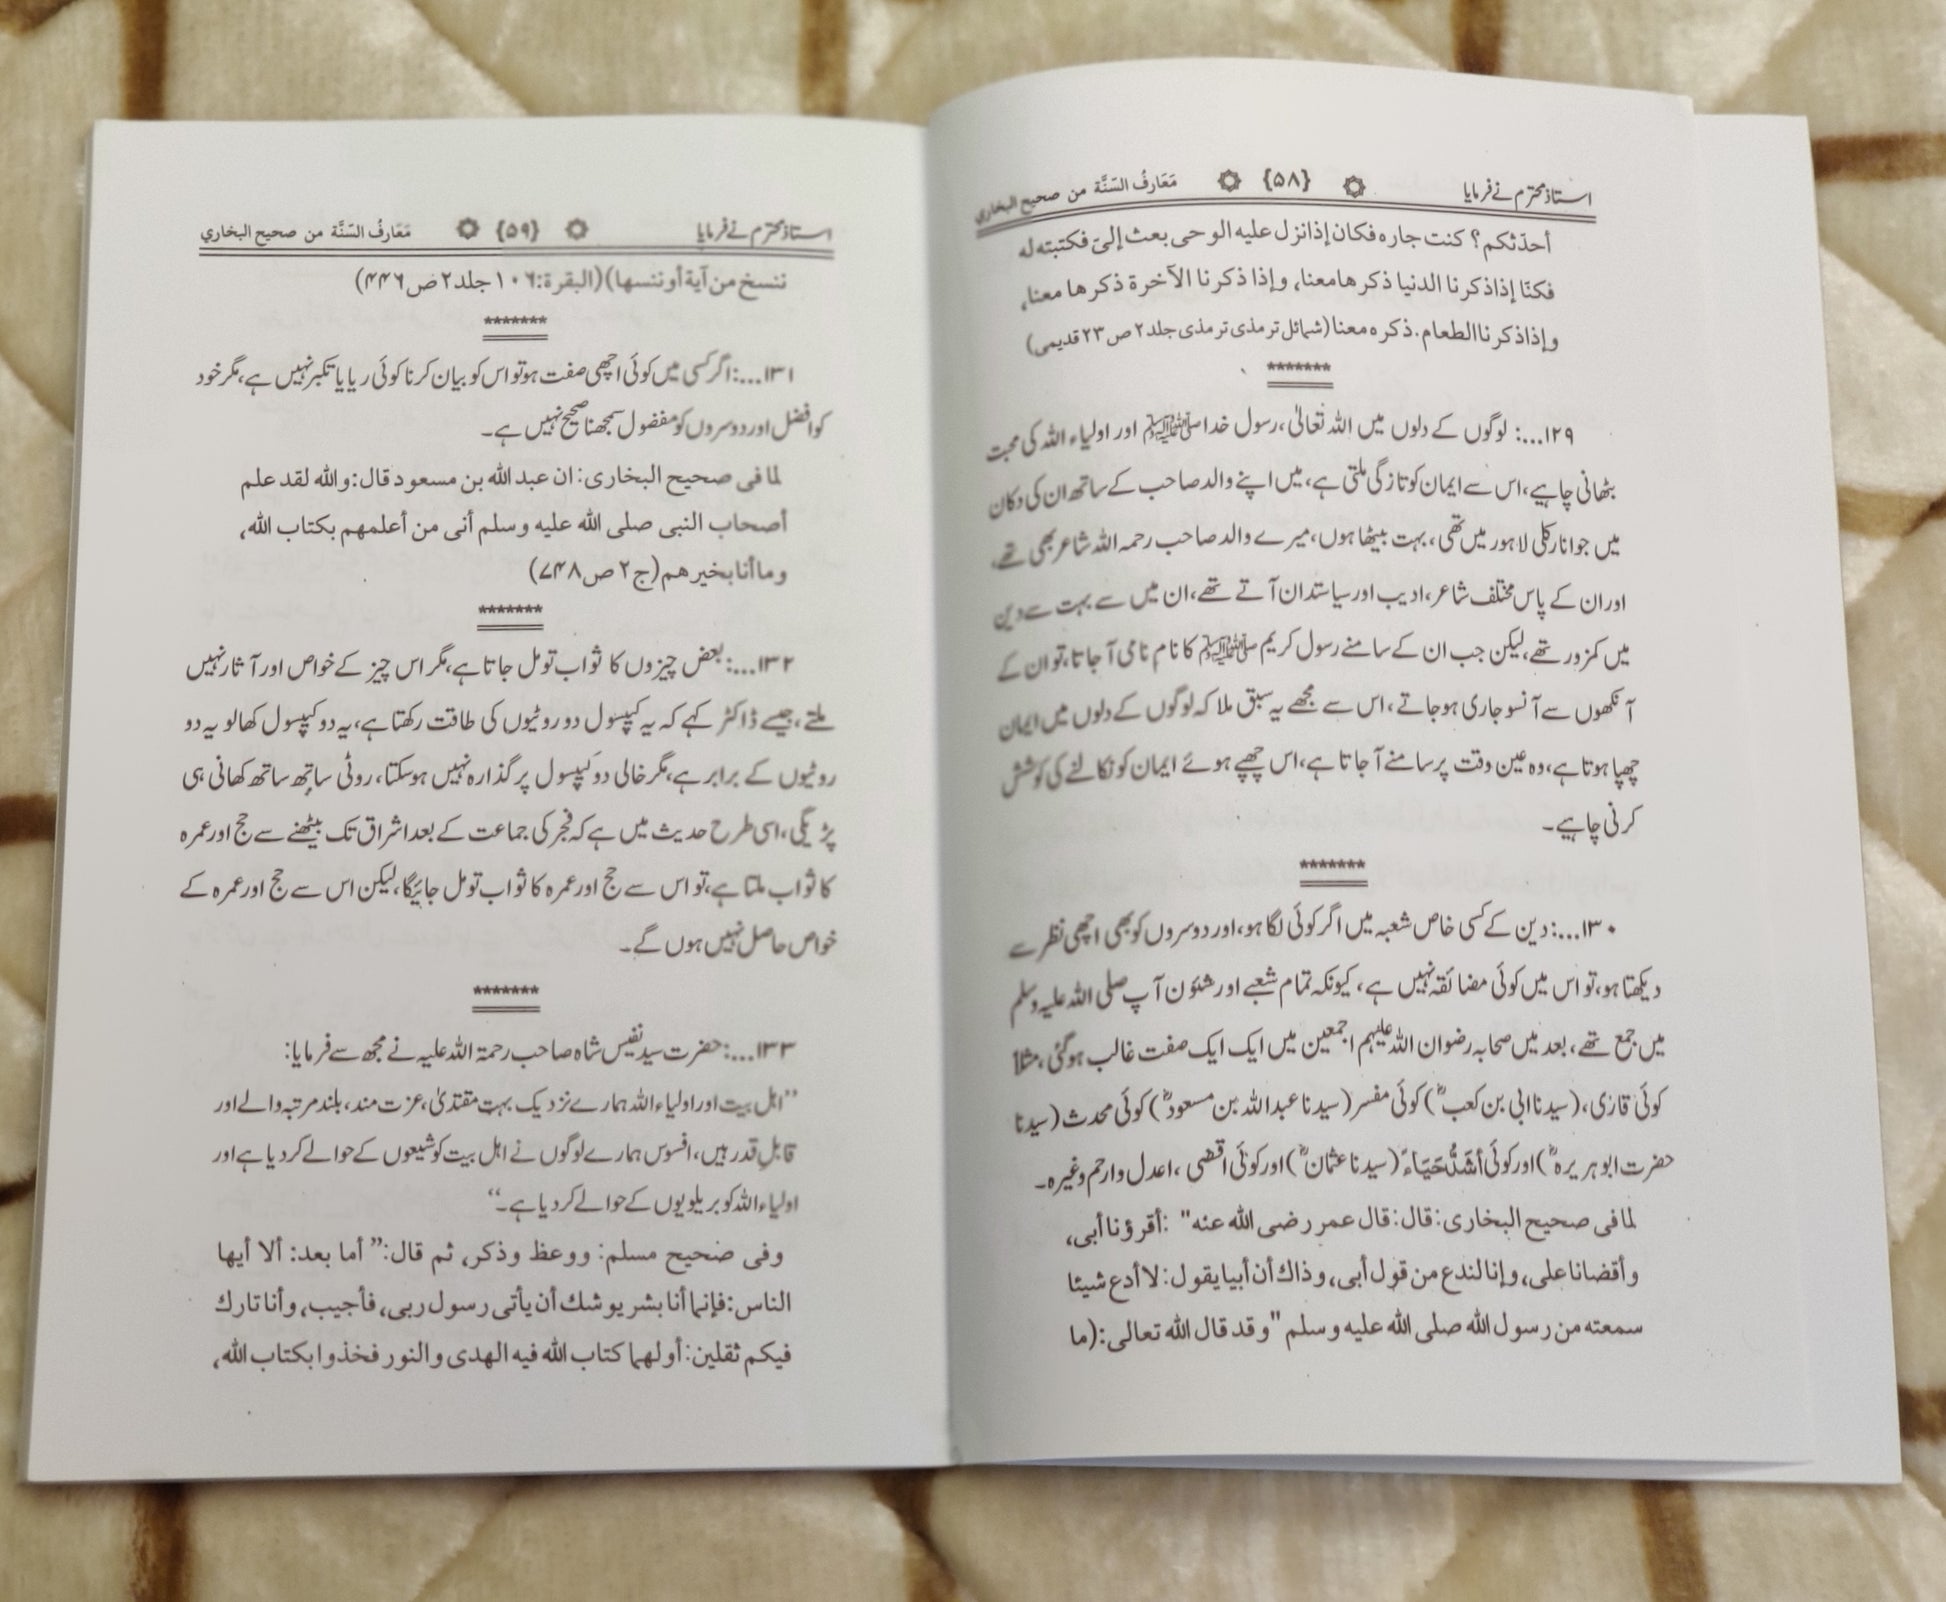 استاذ محترم نے فرمایا {۵۸} مَعَارفُ السّنَّة من صحيح البخاري
أحدّثكم؟ كنت جاره فكان إذا نزل عليه الوحى بعث إلىّ فكتبته له
فكنّا إذا ذكرنا الدنيا ذكرها معنا، وإذا ذكرنا الآخرة ذكرها معنا،
وإذا ذكرنا الطعام. ذكره معنا (شمائل ترمذى ترمذى جلد ۲ ص ۲۳ قدیمی)
*******
۱۲۹...: لوگوں کے دلوں میں اللہ تعالیٰ، رسول خدا ﷺ اور اولیاء اللہ کی محبت
بٹھانی چاہیے، اس سے ایمان کو تازگی ملتی ہے، میں اپنے والد صاحب کے ساتھ ان کی دکان
میں جو انارکلی لاہور میں تھی، بہت بیٹھا ہوں، میرے والد صاحب رحمہ اللہ شاعر بھی تھے،
اور ان کے پاس مختلف شاعر، ادیب اور سیاستدان آتے تھے، ان میں سے بہت سے دین
میں کمزور تھے، لیکن جب ان کے سامنے رسول کریم ﷺ کا نام نامی آ جاتا، تو ان کے
آنکھوں سے آنسو جاری ہو جاتے، اس سے مجھے یہ سبق ملا کہ لوگوں کے دلوں میں ایمان
چھپا ہوتا ہے، وہ عین وقت پر سامنے آ جاتا ہے، اس چھپے ہوئے ایمان کو نکالنے کی کوشش
کرنی چاہیے۔
*******
۱۳۰...: دین کے کسی خاص شعبہ میں اگر کوئی لگا ہو، اور دوسروں کو بھی اچھی نظر سے
دیکھتا ہو، تو اس میں کوئی مضائقہ نہیں ہے، کیونکہ تمام شعبے اور شئون آپ صلی اللہ علیہ وسلم
میں جمع تھے، بعد میں صحابہ رضوان اللہ علیہم اجمعین میں ایک ایک صفت غالب ہو گئی، مثلاً
کوئی قاری، (سیدنا ابی بن کعبؓ) کوئی مفسر (سیدنا عبد اللہ بن مسعودؓ) کوئی محدث (سیدنا
حضرت ابو ہریرہؓ) اور کوئی أشَدُّ حَيَاءً (سیدنا عثمانؓ) اور کوئی اقضی، اعدل وارحم وغیرہ۔
لما فى صحيح البخارى: قال: قال عمر رضى الله عنه" :أقرؤنا أبى،
وأقضانا على، وإنا لندع من قول أبى، وذاك أن أبيا يقول: لا أدع شيئا
سمعته من رسول الله صلى الله عليه وسلم "وقد قال الله تعالى:(ما
استاذ محترم نے فرمایا {۵۹} مَعَارفُ السّنَّة من صحيح البخاري
ننسخ من آية أو ننسها)(البقرة:۱۰۶ جلد ۲ ص ۴۴۶)
*******
۱۳۱...: اگر کسی میں کوئی اچھی صفت ہو تو اس کو بیان کرنا کوئی ریا یا تکبر نہیں ہے، مگر خود
کو افضل اور دوسروں کو مفضول سمجھنا صحیح نہیں ہے۔
لما فى صحيح البخارى: ان عبد الله بن مسعود قال: والله لقد علم
أصحاب النبى صلى الله عليه وسلم أنى من أعلمهم بكتاب الله،
وما أنا بخيرهم (ج ۲ ص ۷۴۸)
*******
۱۳۲...: بعض چیزوں کا ثواب تو مل جاتا ہے، مگر اس چیز کے خواص اور آثار نہیں
ملتے، جیسے ڈاکٹر کہے کہ یہ کیپسول دو روٹیوں کی طاقت رکھتا ہے، یہ دو کیپسول کھا لو یہ دو
روٹیوں کے برابر ہے، مگر خالی دو کیپسول پر گذارہ نہیں ہو سکتا، روٹی ساتھ ساتھ کھانی ہی
پڑیگی، اسی طرح حدیث میں ہے کہ فجر کی جماعت کے بعد اشراق تک بیٹھنے سے حج اور عمرہ
کا ثواب ملتا ہے، تو اس سے حج اور عمرہ کا ثواب تو مل جائیگا، لیکن اس سے حج اور عمرہ کے
خواص حاصل نہیں ہوں گے۔
*******
۱۳۳...: حضرت سید نفیس شاہ صاحب رحمۃ اللہ علیہ نے مجھ سے فرمایا:
’’اہل بیت اور اولیاء اللہ ہمارے نزدیک بہت مقتدیٰ، عزت مند، بلند مرتبہ والے اور
قابلِ قدر ہیں، افسوس ہمارے لوگوں نے اہل بیت کو شیعوں کے حوالے کر دیا ہے اور
اولیاء اللہ کو بریلویوں کے حوالے کر دیا ہے۔‘‘
وفى صحيح مسلم: ووعظ وذكر، ثم قال:" أما بعد: ألا أيها
الناس: فإنما أنا بشر يوشك أن يأتى رسول ربى، فأجيب، وأنا تارك
فيكم ثقلين: أولهما كتاب الله فيه الهدى والنور فخذوا بكتاب الله،